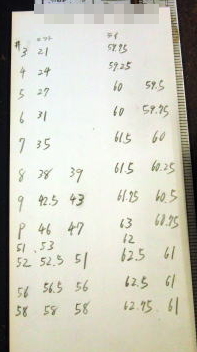 #3 21 59.75
4 24 59.25
5 27 60 59.5
6 31 60 59.75
7 35 61.5 60
8 38 39 61.5 60.25
9 42.5 43 61.75 60.5
P 46 47 63 60.75
51 53 62
52 52.5 51 62.5 61
56 56.5 56 62.5 61
58 58 58 62.75 61